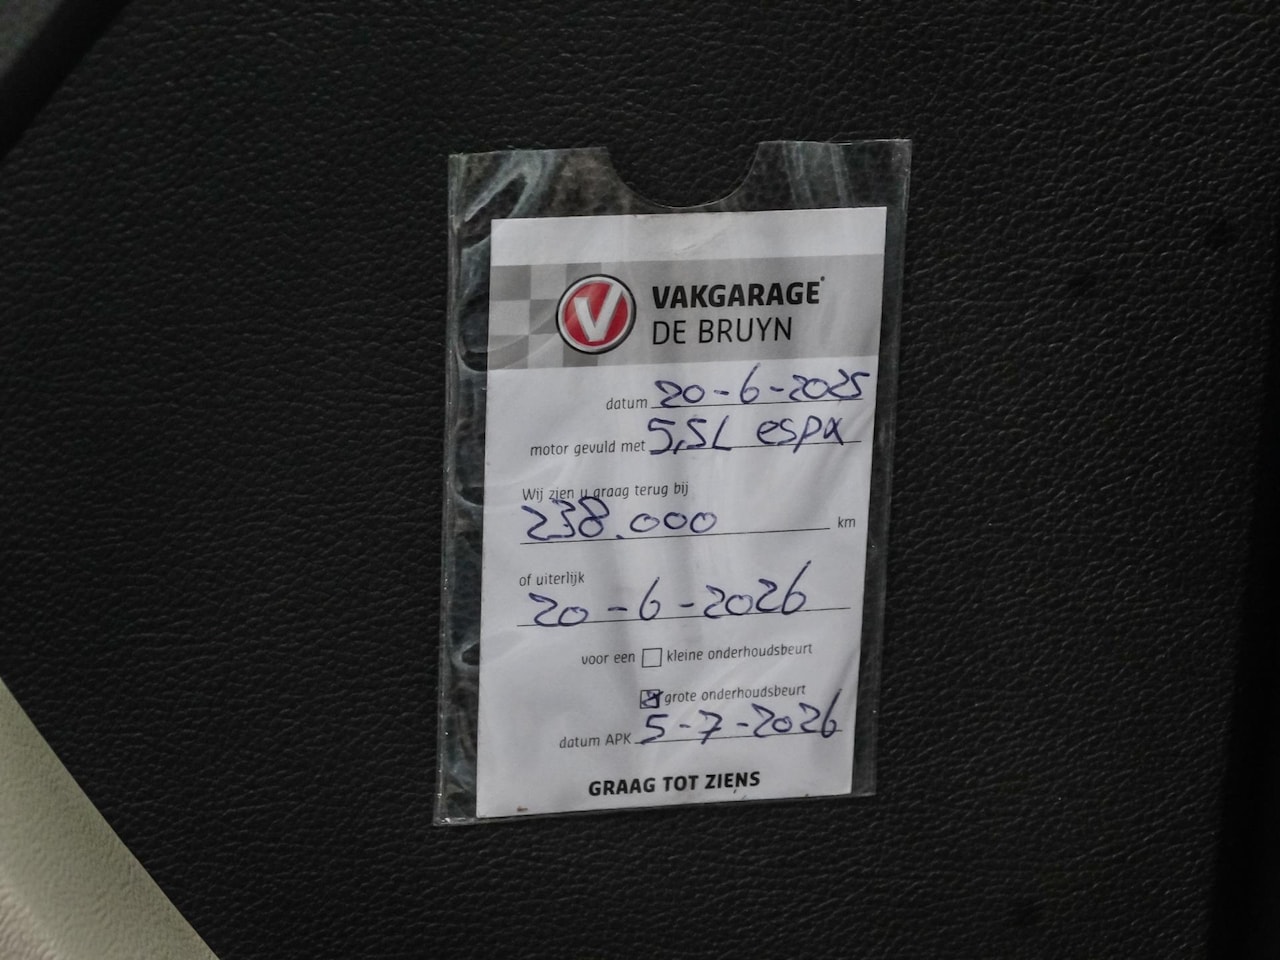 VAKGARAGE
DE BRUYN
datum 20-6-2025
motor gevuld met 5,5L espa
Wij zien u graag terug bij
238.000 km
of uiterlijk
20-6-2026
voor een kleine onderhoudsbeurt
grote onderhoudsbeurt
datum APK 5-7-2026
GRAAG TOT ZIENS